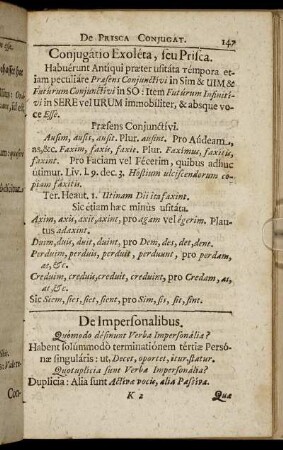 De Prisca Conjugat. 147
Conjugátio Exoléta, seu Prisca.
Habuérunt Antiqui præter usitáta témpora et-
iam peculiáre Præsens Conjunctivi in Sim & UIM &
Futúrum Conjunctivi in SO: Item Futúrum Infiniti-
vi in SERE vel URUM immobíliter, & absque voce
Esse.
Præsens Conjunctívi.
Ausim, ausis, ausit. Plur. ausint. Pro Audeam,
as, &c. Faxim, faxis, faxit. Plur. Faximus, faxitis,
faxint. Pro Faciam vel Fécerim, quibus adhuc
útimur. Liv. L. 9. dec. 3. Hostium ulciscendorum co-
piam faxitis.
Ter. Heaut. 1. Utinam Dii ita faxint.
Sic etiam hæc minùs usitáta.
Axim, axis, axit, axint, pro agam vel égerim. Plau-
tus adaxint.
Duim, duis, duit, duint, pro Dem, des, det, dent.
Perduim, perduis, perduit, perduunt, pro perdam,
as, &c.
Creduim, creduis, creduit, creduint, pro Credam, as,
at &c.
Sic Siem, sies, siet, sient, pro Sim, sis, sit, sint.
De Impersonalibus.
Quómodo désinunt Verba Impersonália?
Habent solúmmodò terminatiónem tértiæ Persó-
næ singuláris: ut, Decet, oportet, itur, statur.
Quotuplicia sunt Verba Impersonália?
Duplicia: Alia sunt Activæ vocis, alia Passivæ.
K 2 Quæ